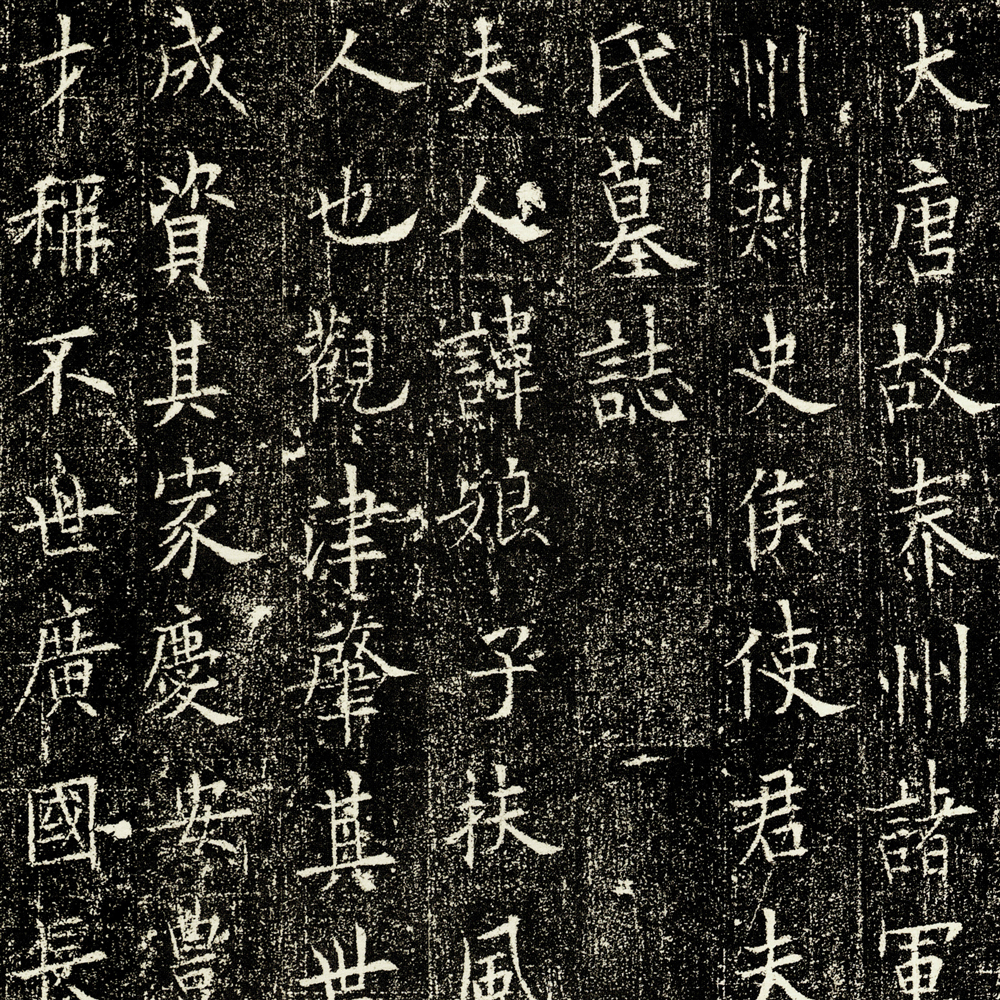 大唐故泰州諸軍
州刺史侯使君夫
氏墓誌
夫人諱娘子扶風
人也觀津肇其世
成資其家慶安豊
才稱不世廣國長